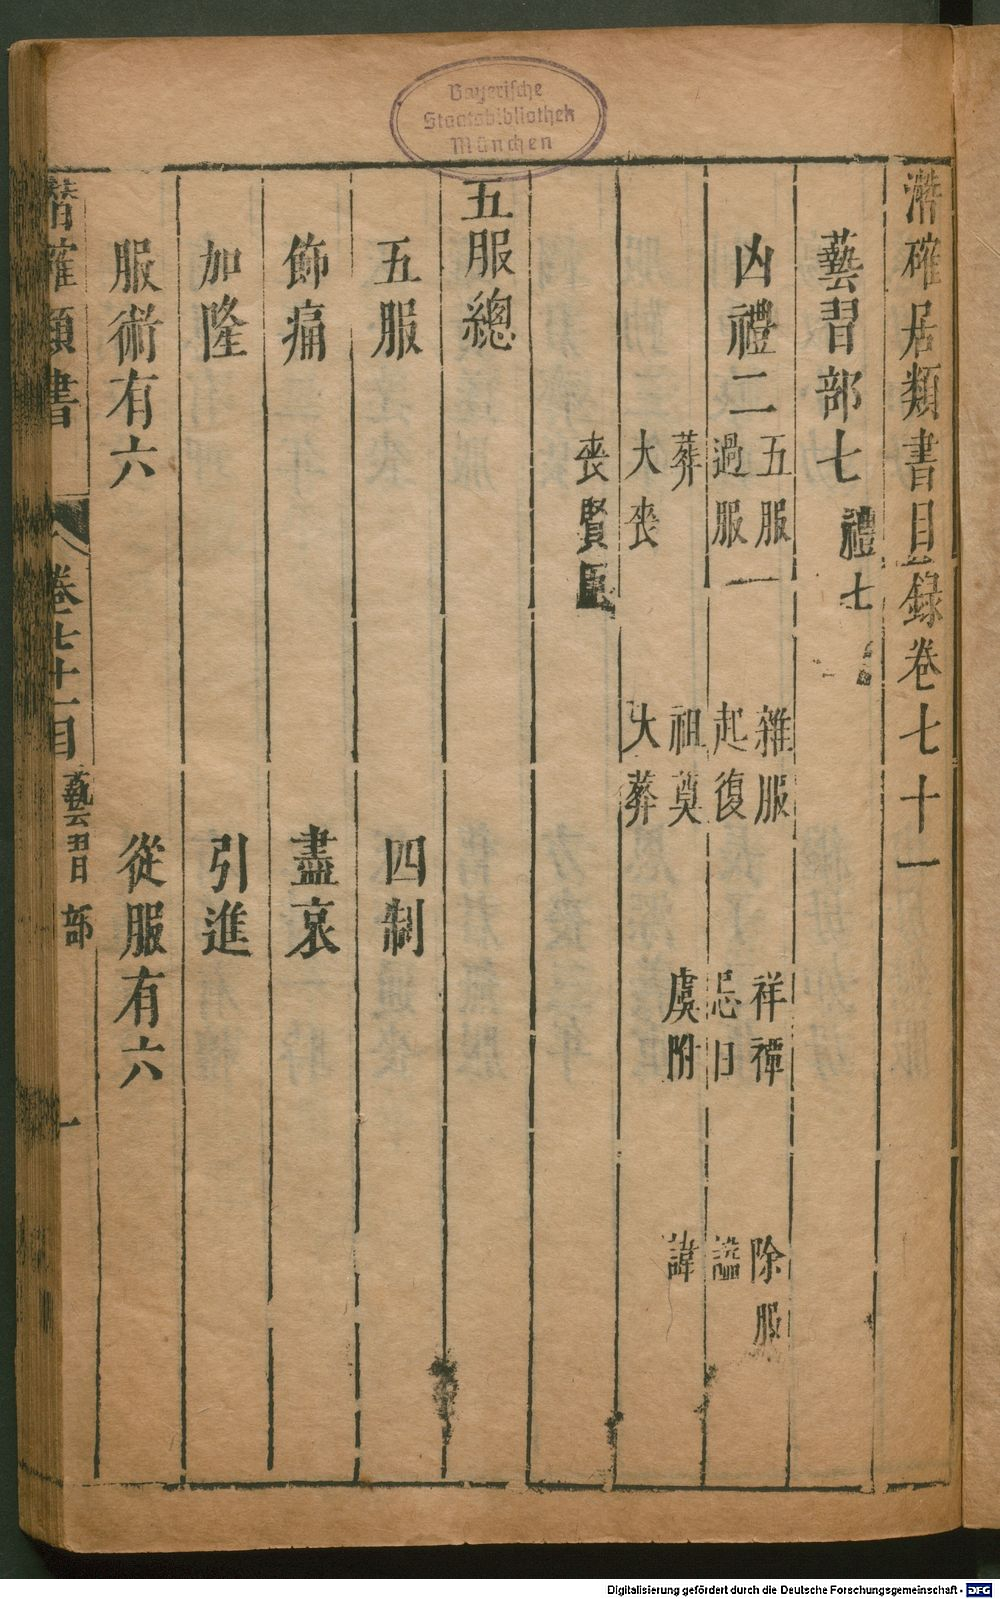 潛確居類書目錄卷七十一
藝習部七 禮七
凶禮二
五服 雜服 祥禫 除服
過服 起復 忌日 謚
葬 祖奠 虞附 諱
大喪 大葬
喪賢臣
五服總
五服 四制
飾痛 盡哀
加隆 引進
服術有六 從服有六
潛確類書 卷七十一目 藝習部 一
Bayerische
Staatsbibliothek
München
Digitalisierung gefördert durch die Deutsche Forschungsgemeinschaft - DFG